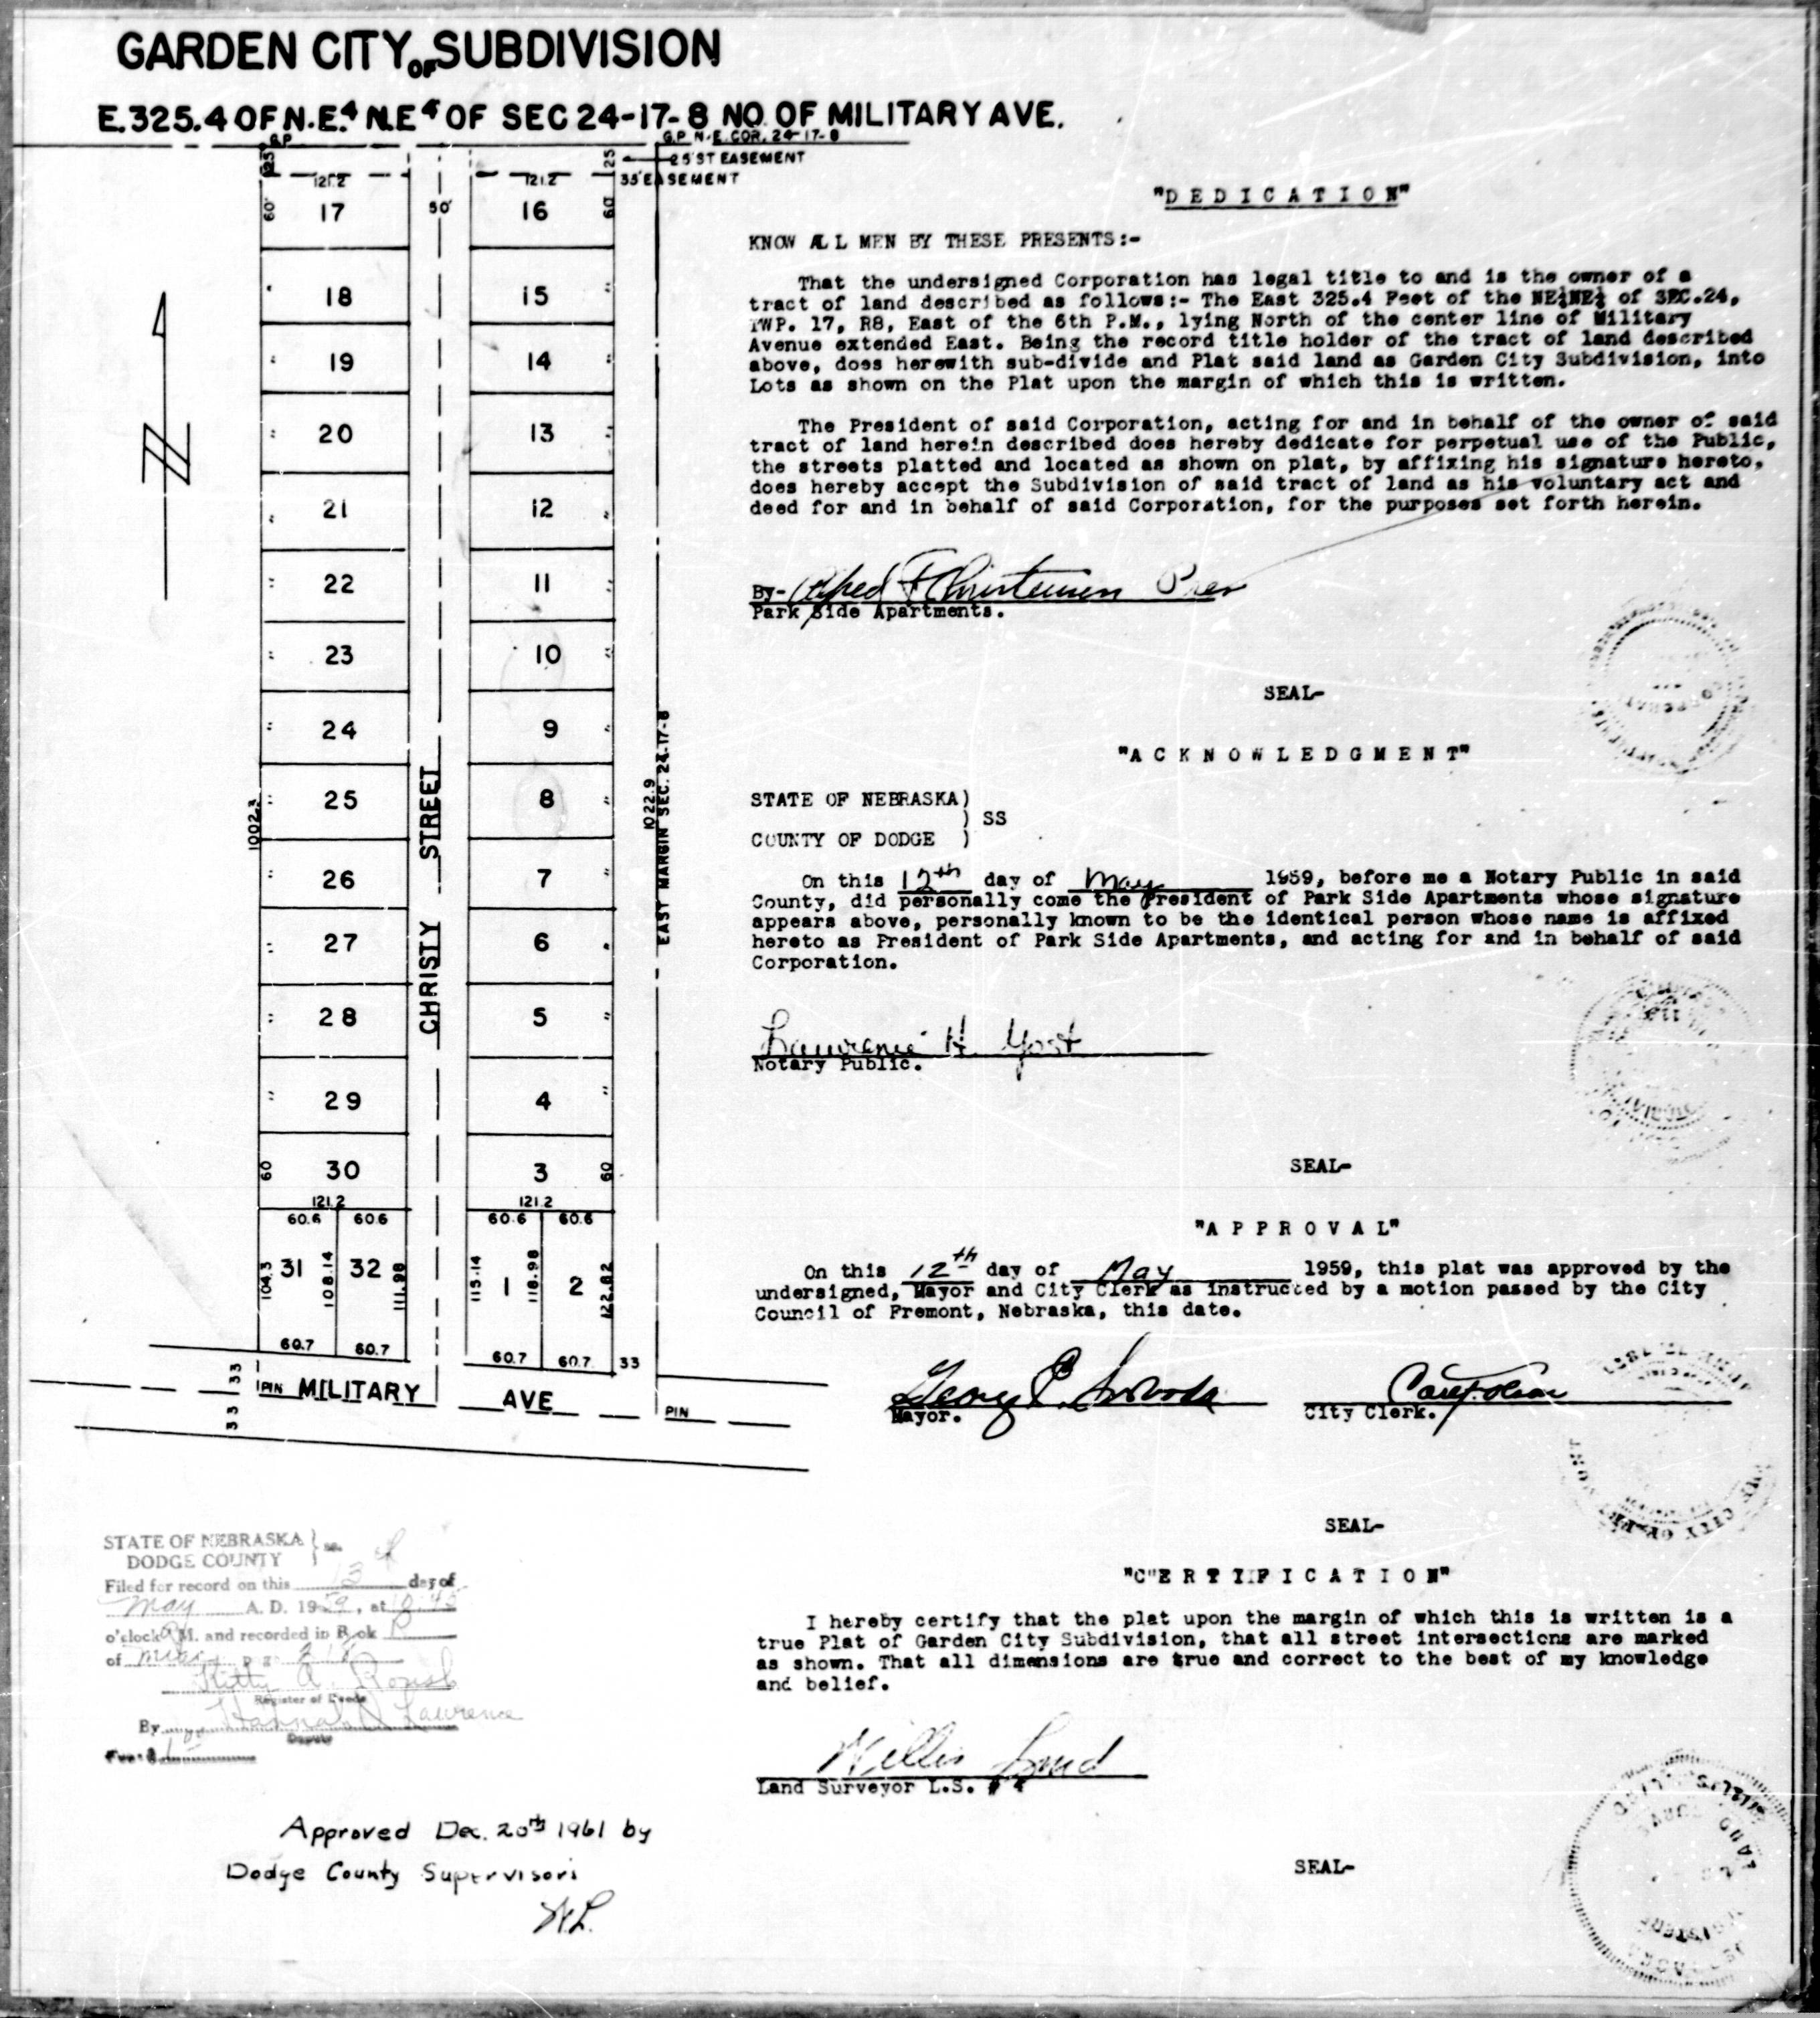 GARDEN CITY OF SUBDIVISION
E.325.4 OF N.E.4 N.E4 OF SEC 24-17-8 NO. OF MILITARY AVE.
G.P.
G.P. N.E. COR. 24-17-8
25' ST EASEMENT
33' EASEMENT
25
25
121.2
121.2
60'
17
50'
16
60
18
15
19
14
20
13
21
12
22
11
23
10
24
9
25
8
26
7
27
6
28
5
29
4
60
30
3
60
121.2
121.2
60.6
60.6
60.6
60.6
1002.3
CHRISTY STREET
1022.9
EAST MARGIN SEC. 24-17-8
104.3
31
108.14
32
111.98
115.14
1
118.98
2
122.82
60.7
60.7
60.7
60.7
33
33
33
PIN
MILITARY AVE
PIN
"DEDICATION"
KNOW ALL MEN BY THESE PRESENTS:-
That the undersigned Corporation has legal title to and is the owner of a
tract of land described as follows:- The East 325.4 Feet of the NE¼NE¼ of SEC.24,
TWP. 17, R8, East of the 6th P.M., lying North of the center line of Military
Avenue extended East. Being the record title holder of the tract of land described
above, does herewith sub-divide and Plat said land as Garden City Subdivision, into
Lots as shown on the Plat upon the margin of which this is written.
The President of said Corporation, acting for and in behalf of the owner of said
tract of land herein described does hereby dedicate for perpetual use of the Public,
the streets platted and located as shown on plat, by affixing his signature hereto,
does hereby accept the Subdivision of said tract of land as his voluntary act and
deed for and in behalf of said Corporation, for the purposes set forth herein.
By- Alfred F Christensen Pres
Park Side Apartments.
SEAL-
"ACKNOWLEDGMENT"
STATE OF NEBRASKA)
) SS
COUNTY OF DODGE )
On this 12th day of May 1959, before me a Notary Public in said
County, did personally come the President of Park Side Apartments whose signature
appears above, personally known to be the identical person whose name is affixed
hereto as President of Park Side Apartments, and acting for and in behalf of said
Corporation.
Lawrence H. Yost
Notary Public.
SEAL-
"APPROVAL"
On this 12th day of May 1959, this plat was approved by the
undersigned, Mayor and City Clerk as instructed by a motion passed by the City
Council of Fremont, Nebraska, this date.
Mayor.
City Clerk.
SEAL-
"CERTIFICATION"
I hereby certify that the plat upon the margin of which this is written is a
true Plat of Garden City Subdivision, that all street intersections are marked
as shown. That all dimensions are true and correct to the best of my knowledge
and belief.
Willis Lund
Land Surveyor L.S. #4
SEAL-
STATE OF NEBRASKA } ss.
DODGE COUNTY
Filed for record on this 13 day of
May A. D. 1959, at 10:45
o'clock A M. and recorded in Book
of Misc
Kitty A. Roush
Register of Deeds
By Hannah Lawrence
Deputy
Fee: $
Approved Dec. 20th 1961 by
Dodge County Supervisors
W.L.